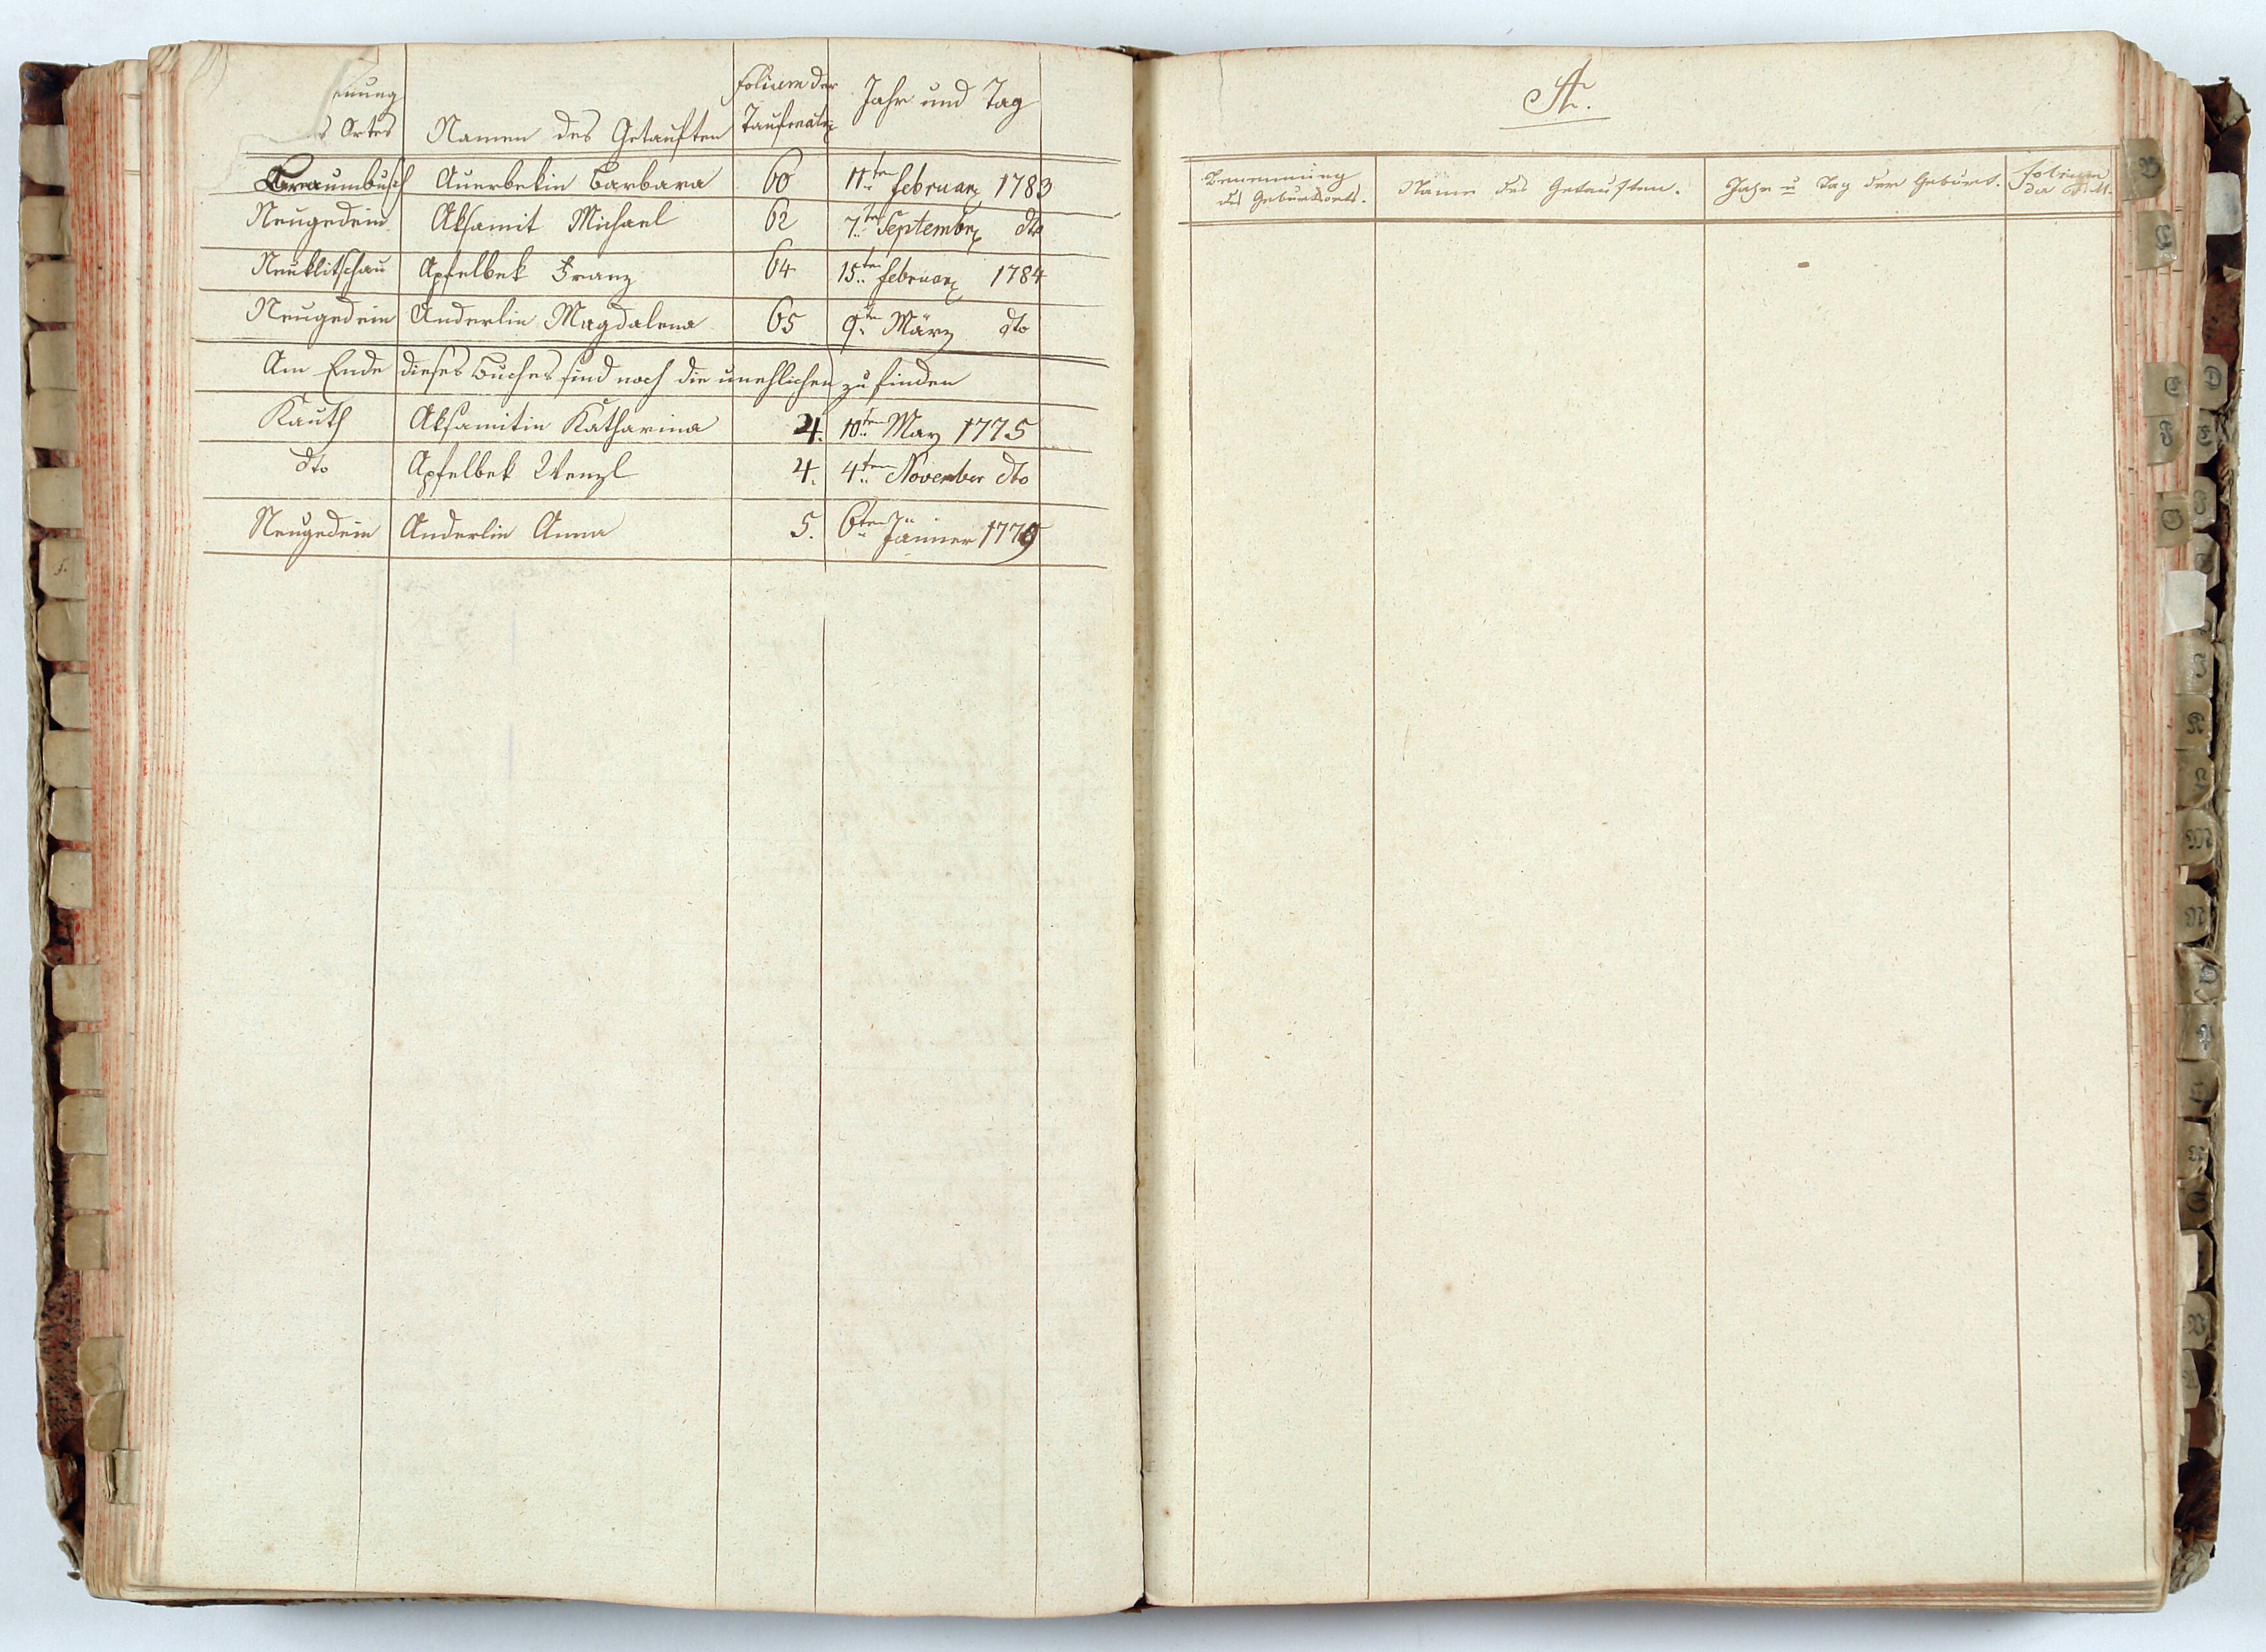 nung
s Ortes
Namen des Getauften
Folium der
Taufmatr:
Jahr und Tag
Braumbusch Auerbekin Barbara 60 11ten Februar 1783
Neugedein Aksamit Michael 62 7ten September dto
Neuklitschau Apfelbek Franz 64 15ten Februar 1784
Neugedein Anderlin Magdalena 65 9ten März dto
Am Ende dieses Buches sind noch die unehlichen zu finden
Kauth Aksamitin Katharina 4. 10ten May 1775
dto Apfelbek Wenzl 4. 4ten November dto
Neugedein Anderlin Anna 5. 6ten Jänner 1779
A.
Benennung
des Geburtsorts.
Name des Getauften.
Jahr u Tag der Geburt.
Folium
der